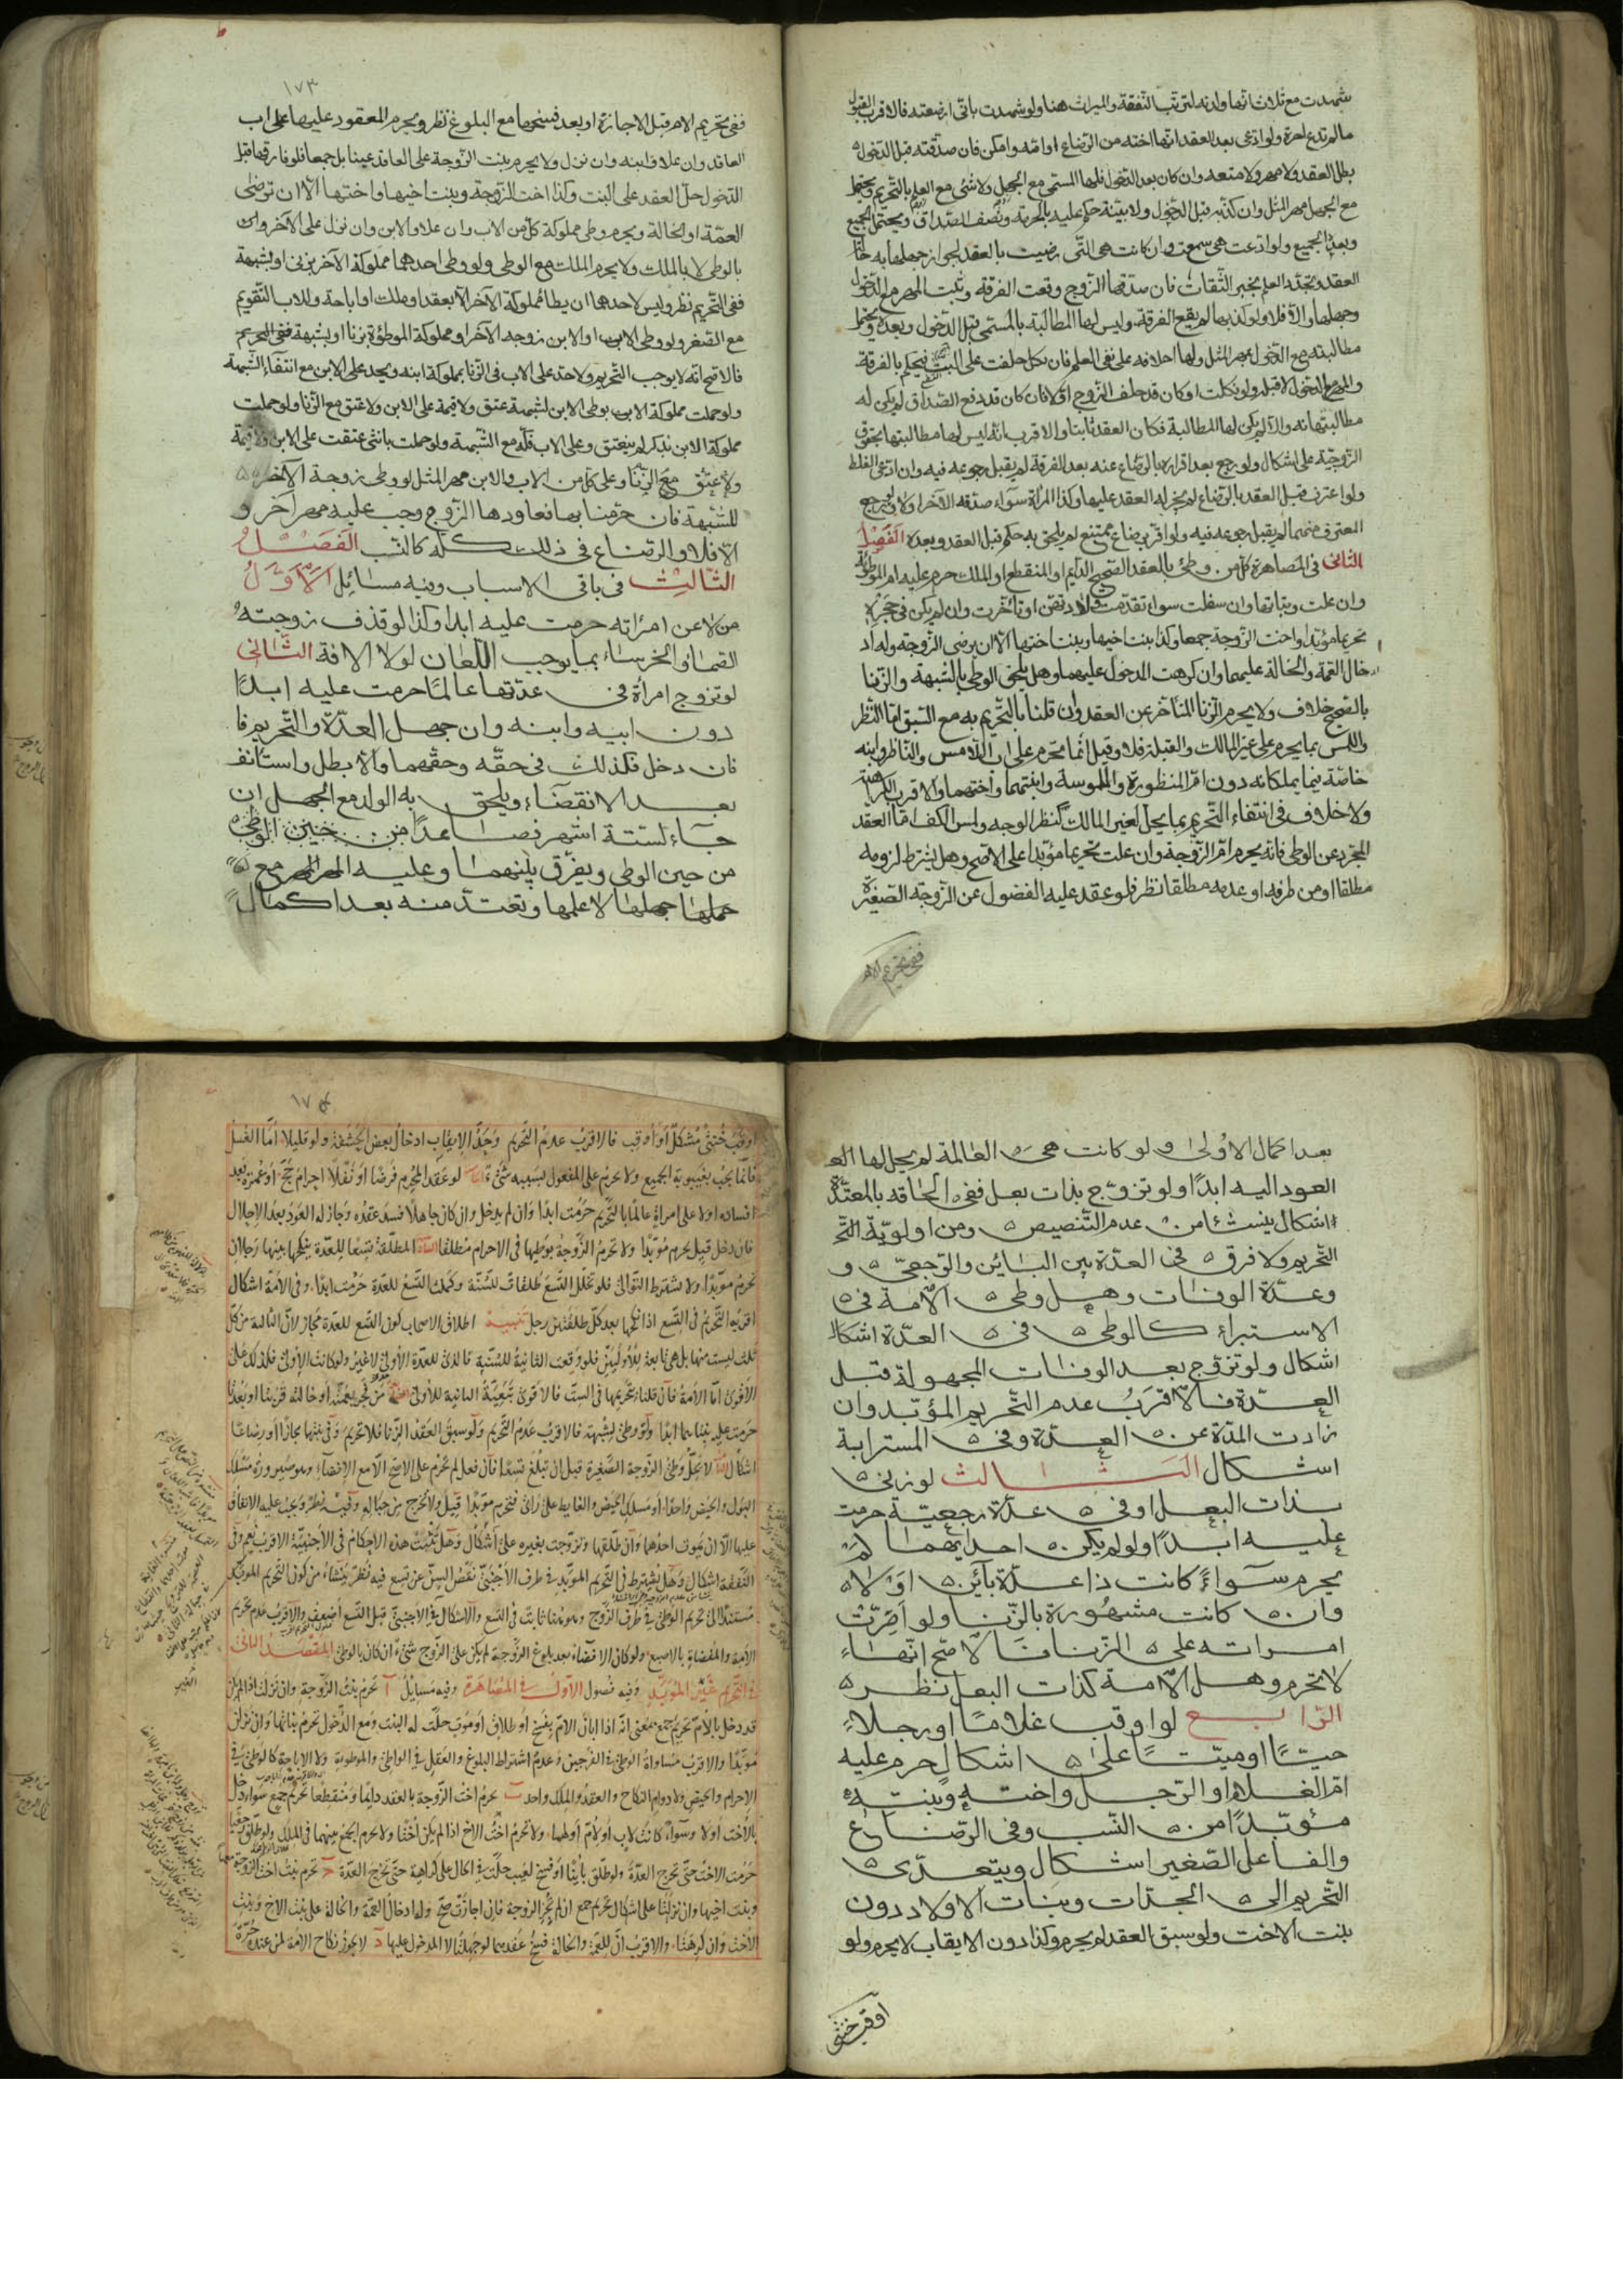 شهدت مع ثلاث انها ولدته لترتب النفقة والميراث هنا ولو شهدت بانى ارضعته فالاقرب القبول
مالم تدع اجرة ولو ادعى بعد العقد انها اخته من الرضاع او امه وامكن فان صدقته قبل الدخول
بطل العقد ولا مهر ولا متعه وان كان بعد الدخول فلها المسمى مع الجهل ولا شئ مع العلم بالتحريم ويحتمل
مع الجهل مهر المثل وان كذبته قبل الدخول ولا بينة حكم عليه بالحرمة ونصف الصداق ويحتمل الجميع
وبعده الجميع ولو ادعت هى سمعت وان كانت هى التى رضيت بالعقد لجواز جهلها به حالة
العقد وتجدد العلم بخبر الثقات فان صدقها الزوج وقعت الفرقة وثبت المهر مع الدخول
وجهلها والا فلا ولو كذبها لم يقع الفرقة وليس لها المطالبة بالمسمى قبل الدخول وبعده ويحتمل
مطالبته مع الدخول بمهر المثل ولها احلافه على نفى العلم فان نكل حلفت على البت فيحكم بالفرقة
والمهر مع الدخول لا قبله ولو نكلت او كان قد حلف الزوج اولا فان كان قد دفع الصداق لم يكن له
مطالبتها به والا لم يكن لها المطالبة فكان العقد ثابتا والاقرب انه ليس لها مطالبتها بحقوق
الزوجية على اشكال ولو رجع بعد اقراره بالرضاع عنه بعد الفرقة لم يقبل رجوعه فيه وان ادعى الغلط
ولو اعترف قبل العقد بالرضاع لم يجز له العقد عليها وكذا المراة سواء صدقه الآخر اولا ولو رجع
المعترف منهما لم يقبل رجوعه فيه ولو اقر برضاع ممتنع لم يلحق به حكم قبل العقد وبعده الفصل
الثانى فى المصاهرة كل من وطئ بالعقد الصحيح الدايم او المنقطع او الملك حرم عليه ام الموطوئة
وان علت وبناتها وان سفلت سواء تقدمت ولادتهن او تأخرت وان لم يكن فى حجره
تحريما مؤبدا واخت الزوجة جمعا وكذا بنت اخيها وبنت اختها الا ان يرضى الزوجة وله اد
خال العمة والخالة عليهما وان كرهت المدخول عليهما وهل يلحق الوطى بالشبهة والزنا
بالصحيح خلاف ولا يحرم الزنا المتأخر عن العقد وان قلنا بالتحريم به مع السبق اما النظر
واللمس بما يحرم على غير المالك والقبلة فلا وقيل انما تحرم على اب اللامس والناظر وابنه
خاصة فيما يملكانه دون ام المنظورة والملموسة وابنتهما واختهما والاقرب الكراهة
ولا خلاف فى انتفاء التحريم بما يحل لغير المالك كنظر الوجه ولمس الكف اما العقد
المجرد عن الوطى فانه يحرم ام الزوجة وان علت تحريما مؤبدا على الاصح وهل يشترط لزومه
مطلقا او من طرفه او عدمه مطلقا نظر فلو عقد عليه الفضول عن الزوجة الصغيرة
ففى تحريم الام
١٧٣
ففى تحريم الام قبل الاجازة او بعد فسخها مع البلوغ نظر ويحرم المعقود عليها على اب
العاقد وان علا وابنه وان نزل ولا يحرم بنت الزوجة على العاقد عينا بل جمعا فلو فارقها قبل
الدخول حل العقد على البنت وكذا اخت الزوجة وبنت اخيها واختها الا ان ترضى
العمة او الخالة ويحرم وطى مملوكة كل من الاب وان علا والابن وان نزل على الآخر وان
بالوطى لا بالملك ولا يحرم الملك مع الوطى ولو وطى احدهما مملوكة الآخر بزنى او بشبهة
ففى التحريم نظر وليس لاحدهما ان يطأ مملوكة الآخر الا بعقد او ملك او اباحة وللاب التقويم
مع الصغر ولو وطى الاب او الابن زوجة الآخر او مملوكة الموطؤة بزنا او بشبهة ففى التحريم
فالاصح انه لا يوجب التحريم ولا حد على الاب فى الزنا بمملوكة ابنه ويحد على الابن مع انتفاء الشبهة
ولو حملت مملوكة الاب بوطى الابن لشبهة عتق ولا قيمة على الابن ولا عتق مع الزنا ولو حملت
مملوكة الابن بذكر لم ينعتق وعلى الاب فكه مع الشبهة ولو حملت بانثى عتقت على الابن ولا قيمة
ولا عتق مع الزنا وعلى كل من الاب والابن مهر المثل لو وطى زوجة الآخر
للشبهة فان حرمنا بها فعاودها الزوج وجب عليه مهر آخر و
الا فلا والرضاع فى ذلك كله كالنسب الفصل
الثالث فى باقى الاسباب وفيه مسائل الاول
من لاعن امرأته حرمت عليه ابدا وكذا لو قذف زوجته
الصماء او الخرساء بما يوجب اللعان لولا الافة الثانى
لو تزوج امرأة فى عدتها عالما حرمت عليه ابدا
دون ابيه وابنه وان جهل العدة والتحريم فا
فان دخل فكذلك فى حقه وحقهما والا بطل واستأنف
بعد الانقضاء ويلحق به الولد مع الجهل ان
جاء لستة اشهر فصاعدا من حين الوطى
من حين الوطى ويفرق بينهما وعليه المهر المهر مع
حملها جهلها لا علمها وتعتد منه بعد اكمال
بعد اكمال الاولى ولو كانت هى العالمة لم يحل لها العو
العود اليه ابدا ولو تزوج بذات بعل ففى الحاقه بالمعتدة
اشكال ينشأ من عدم التنصيص ومن اولوية التحـ
التحريم ولا فرق فى العدة بين الباين والرجعى و
وعدة الوفات وهل وطى الامة فى
الاستبراء كالوطى فى العدة اشكال
اشكال ولو تزوج بعد الوفات المجهولة قبل
العدة فالاقرب عدم التحريم المؤبد وان
زادت المدة عن العدة وفى المسترابة
اشكال الثالث لو زنى
بذات البعل او فى عدة رجعية حرمت
عليه ابدا ولو لم يكن احدايهما لم
يحرم سواء كانت ذا عدة بآئن او لا
وان كانت مشهورة بالزنا ولو اصرت
امراته على الزنا فالاصح انها
لا تحرم وهل الامة كذات البعل نظر
الرابع لو اوقب غلاما او رجلا
حيا او ميتا على اشكال حرم عليه
ام الغلام او الرجل واخته وبنته
مؤبدا من النسب وفى الرضاع
والفاعل الصغير اشكال ويتعدى
التحريم الى الجدات وبنات الاولاد دون
بنت الاخت ولو سبق العقد لم يحرم وكذا دون الايقاب لا يحرم ولو
اوقب خنثى
اوقب خنثى مشكل او اوقب فالاقرب عدم التحريم وحد الايقاب ادخال بعض الحشفة ولو قليلا اما الغسل
فانما يجب بغيبوبة الجميع ولا يحرم على المفعول بسببه شئ لو عقد المحرم فرضا او نفلا احرام حج او عمرة بعد
افساده اولا على امراة عالما بالتحريم حرمت ابدا وان لم يدخل وان كان جاهلا فسد عقده وجاز له العود بعد الاحلال
فان دخل قبل يحرم مؤبدا ولا تحرم الزوجة بوطيها فى الاحرام مطلقا المطلقة تسعا للعدة ينكحها بينها رجلان
تحرم مؤبدا ولا يشترط التوالى فلو تخلل التسع طلقات للسنة وكملت التسع للعدة حرمت ابدا وفى الامة اشكال
اقربه التحريم فى التسع اذا نكحها بعد كل طلقتين رجل تنبيه اطلاق الاصحاب كون التسع للعدة مجاز لان الثالثة من كل
ثلث ليست منها بل هى تابعة للاوليين فلو وقعت الثانية للسنة فالذى للعدة الاولى لا غير ولو كانت الاولى فكذلك على
الاقوى اما الامة فان قلنا بتحريمها فى الست فالاقوى تبعية الثانية للاولى من فجر بعمته او خالته قربتا او بعدتا
حرمت عليه بنتاهما ابدا ولو وطئ لشبهة فالاقرب عدم التحريم ولو سبق العقد الزنا فلا تحريم وفى بنتها مجازا او رضاعا
اشكال لا يحل وطئ الزوجة الصغيرة قبل ان تبلغ تسعا فان فعل لم تحرم على الاصح الا مع الافضاء وهو صيرورة مسلك
البول والحيض واحدا او مسلك الحيض والغايط على راى فتحرم مؤبدا قيل ولا تخرج من حباله وفيه نظر ويجب عليه الانفاق
عليها الا ان يموت احدهما وان طلقها وتزوجت بغيره على اشكال وهل تثبت هذه الاحكام فى الاجنبية الاقرب نعم وفى
النفقة اشكال وهل يشترط فى التحريم المؤبد فى طرف الاجنبى نقص السن عن تسع فيه نظر ينشأ من كون التحريم المؤبد
مستندا الى تحريم الوطى فى طرف الزوج وهو هنا ثابت فى التسع والاشكال فى الاجنبى قبل التسع اضعف والاقرب عدم تحريم
الامة والمفضاة بالاصبع ولو كان الافضاء بعد بلوغ الزوجة لم يكن على الزوج شئ ان كان بالوطى المقصد الثانى
فى التحريم غير المؤبد وفيه فصول الاول فى المصاهرة وفيه مسايل آ تحرم بنت الزوجة وان نزلت اذا لم يكن
قد دخل بالام تحريم جمع بمعنى انه اذا ابان الام بفسخ او طلاق او موت حلت له البنت ومع الدخول تحرم بناتها وان نزلن
مؤبدا والاقرب مساواة الوطى فى الفرجين وعدم اشتراط البلوغ والعقل فى الواطى والموطوءة ولا الاباحة كالوطى فى
الاحرام والحيض ولا دوام النكاح والعقد والملك واحد ب تحرم اخت الزوجة بالعقد دايما ومنقطعا تحريم جمع سواء دخل
بالاخت او لا وسواء كانت لاب او لام او لهما ولا تحرم اخت الاخ اذا لم يكن اختا ولا يحرم الجمع بينهما فى الملك ولو طلق رجعيا
حرمت الاخت حتى تخرج العدة ولو طلق باينا او فسخ لعيب حلت فى الحال على كراهية حتى تخرج العدة ج تحرم بنت اخت الزوجة
وبنت اخيها وان نزلتا على اشكال تحريم جمع ان لم تجز الزوجة فان اجازت صح وله ادخال العمة والخالة على بنت الاخ وبنت
الاخت وان كرهتا والاقرب ان للعمة والخالة فسخ عقدهما لو جهلتا لا المدخول عليها د لا يجوز نكاح الامة لمن عنده حرة